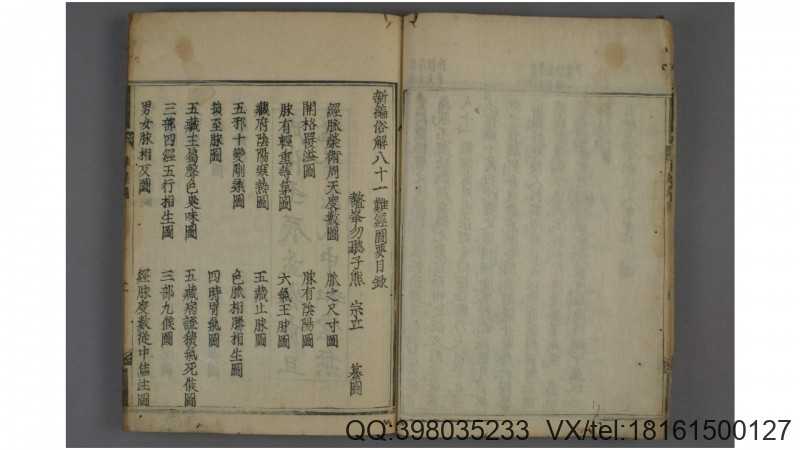 新編俗解八十一難經圖要目錄
鼇峯勿聽子熊 宗立 纂圖
經脉榮衛周天度數圖 脉之尺寸圖
關格覆溢圖 脉有陰陽圖
脉有輕重等第圖 六氣王脉圖
藏府陰陽寒熱圖 五藏止脉圖
五邪十變剛柔圖 色脉相勝相生圖
損至脉圖 四時胃氣圖
五藏主聲色臭味圖 五藏病證積氣死候圖
三部四經五行相生圖 三部九候圖
男女脉相反圖 經脉度數從中焦注圖
QQ:398035233 VX/tel:18161500127